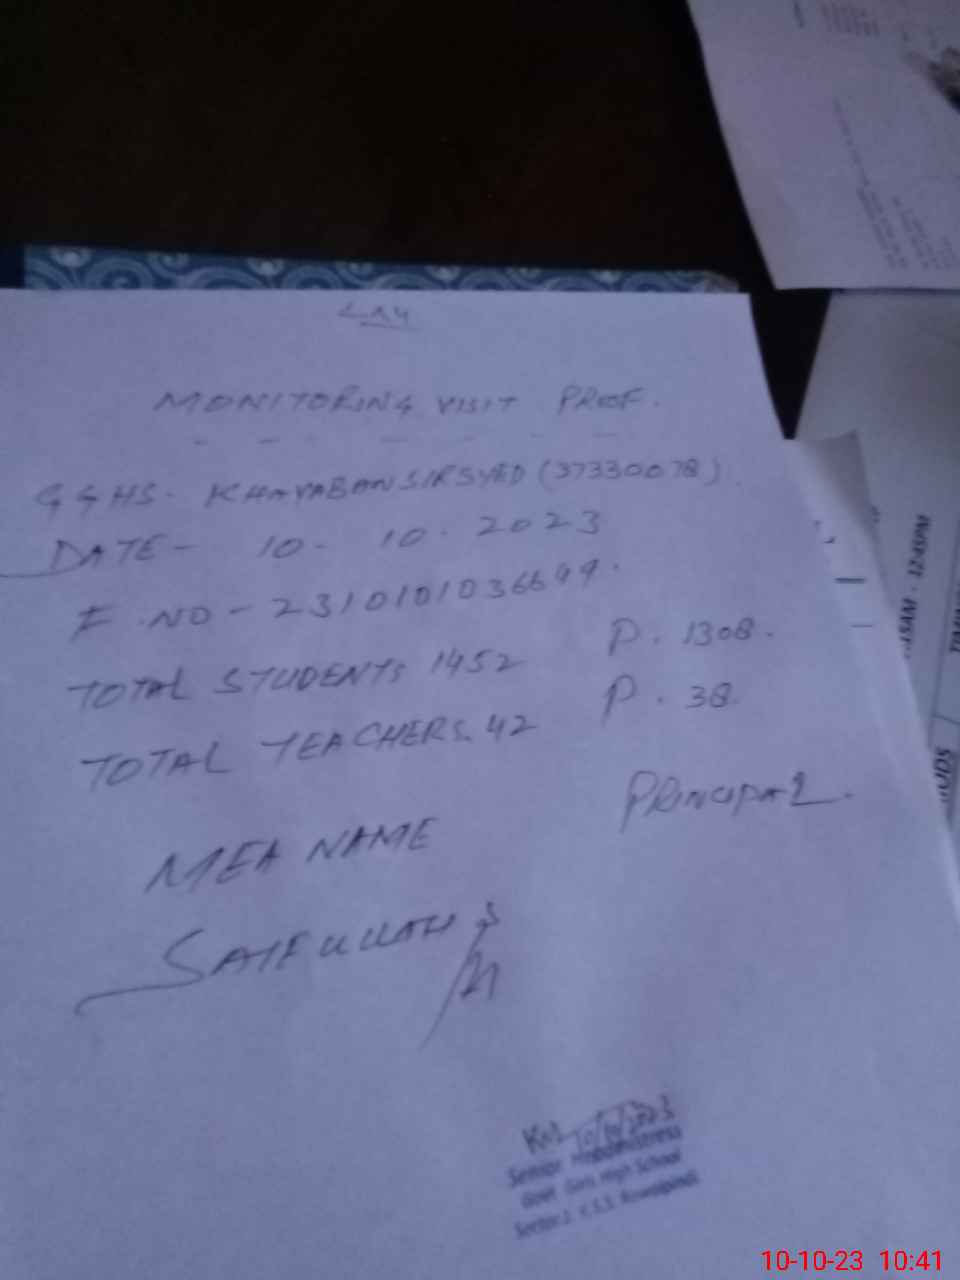 MONITORING VISIT PROOF.
GGHS. KHAYABANSIRSYED (37330078)
DATE - 10. 10. 2023
F.NO - 2310101036699.
TOTAL STUDENTS 1452 P. 1308.
TOTAL TEACHERS. 42 P. 38.
MEA NAME PRINCIPAL.
SAIFULLAH
10/10/2023
Senior Headmistress
Govt Girls High School
Sector 2 K.S.S. Rawalpindi
15AM - 12:45PM
10-10-23 10:41